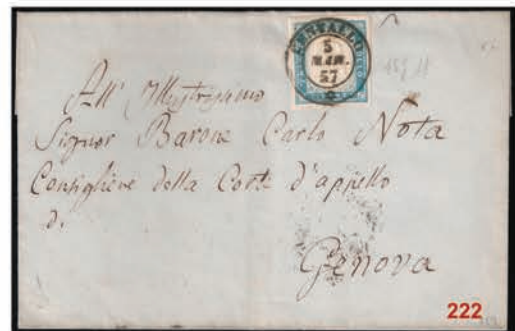 CENTALLO
5
MAR.
57
All' Illustrissimo
Signor Barone Carlo Nota
Consigliere della Corte d'appello
di
Genova
222